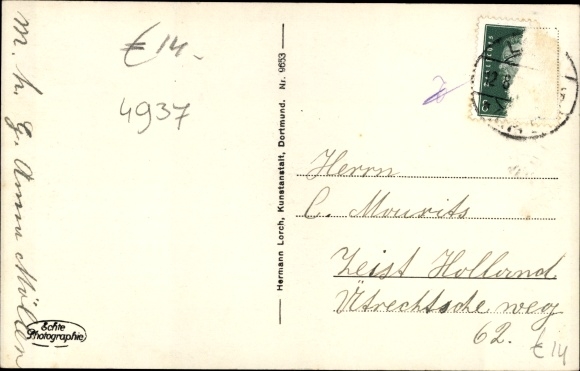 m. h. G. Anna Möllen
€ 14.-
4937
Echte
Photographie
Hermann Lorch, Kunstanstalt, Dortmund. Nr. 9653
Herrn
C. Mourits
Zeist Holland
Utrechtsche weg
62.
€ 14